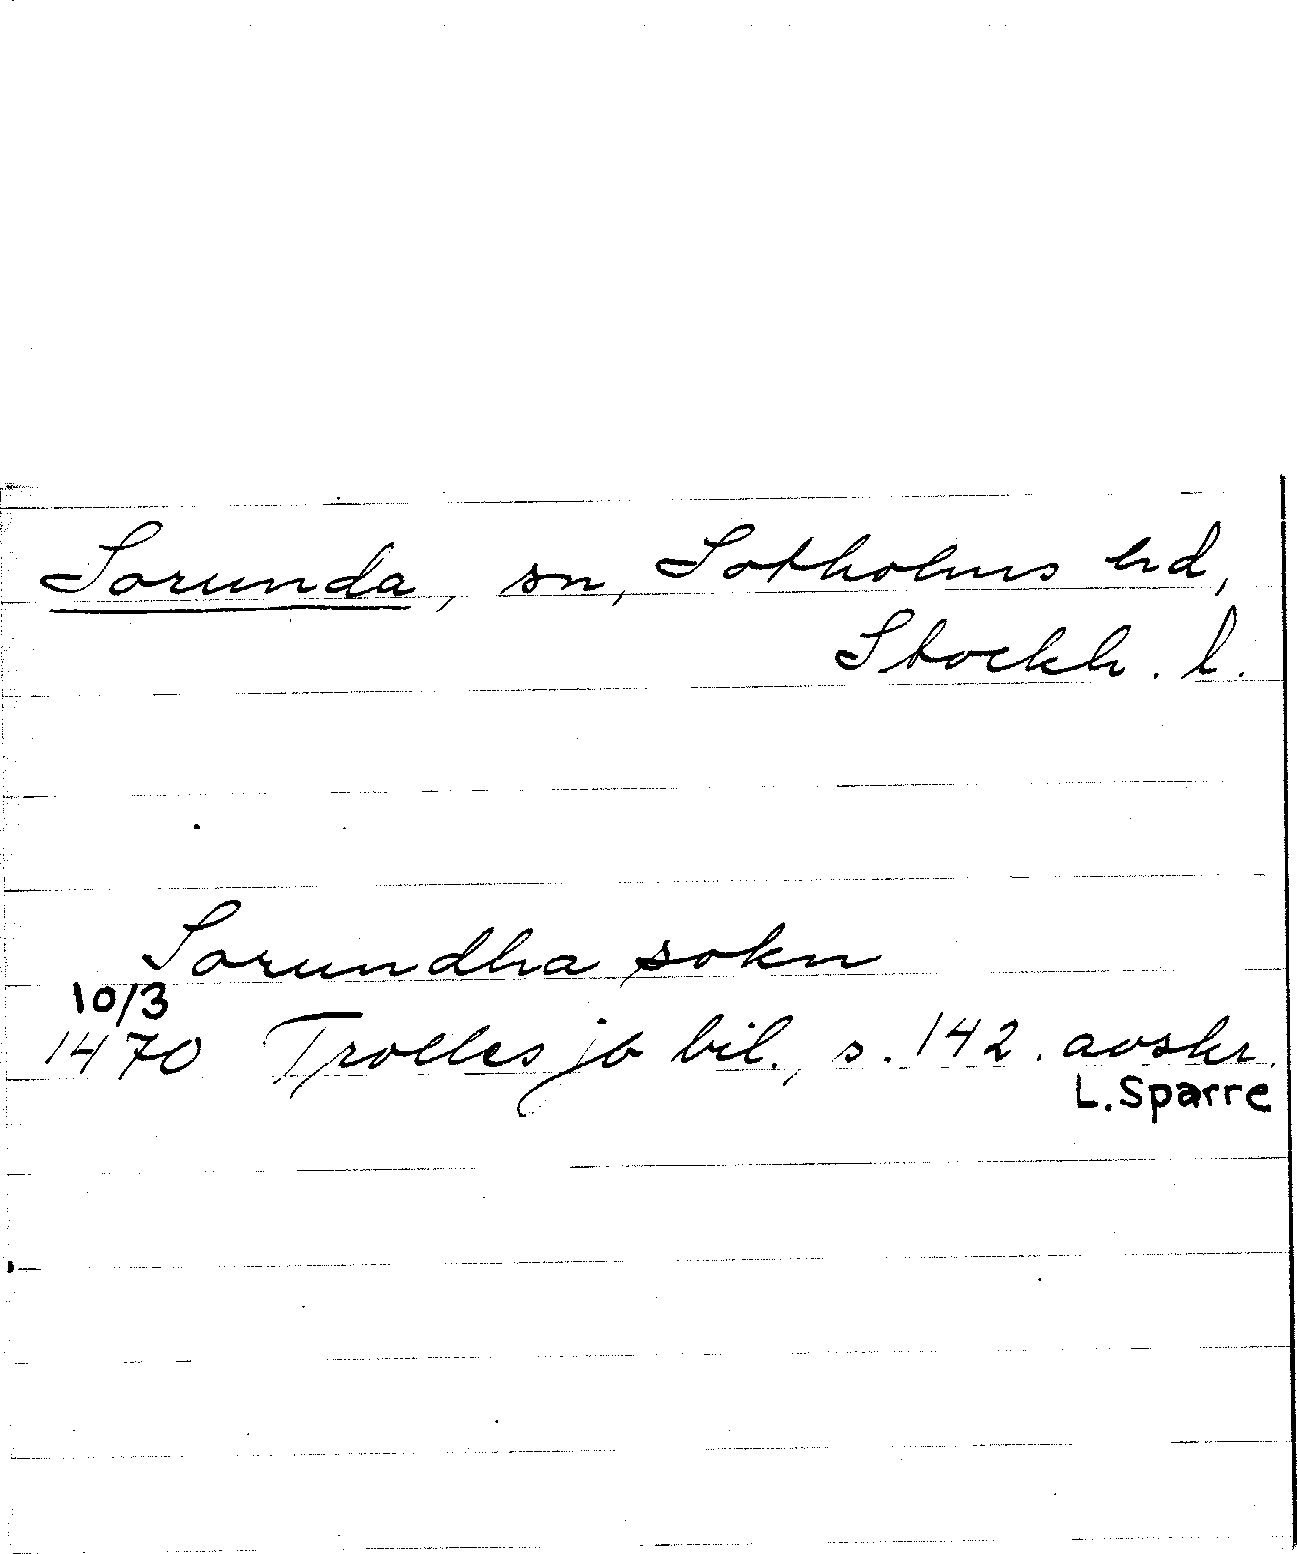 Sorunda, sn, Sotholms hd,
Stockh. l.
Sorundha sokn
10/3
1470 Trolles jb bil., s. 142. avskr.
L. Sparre